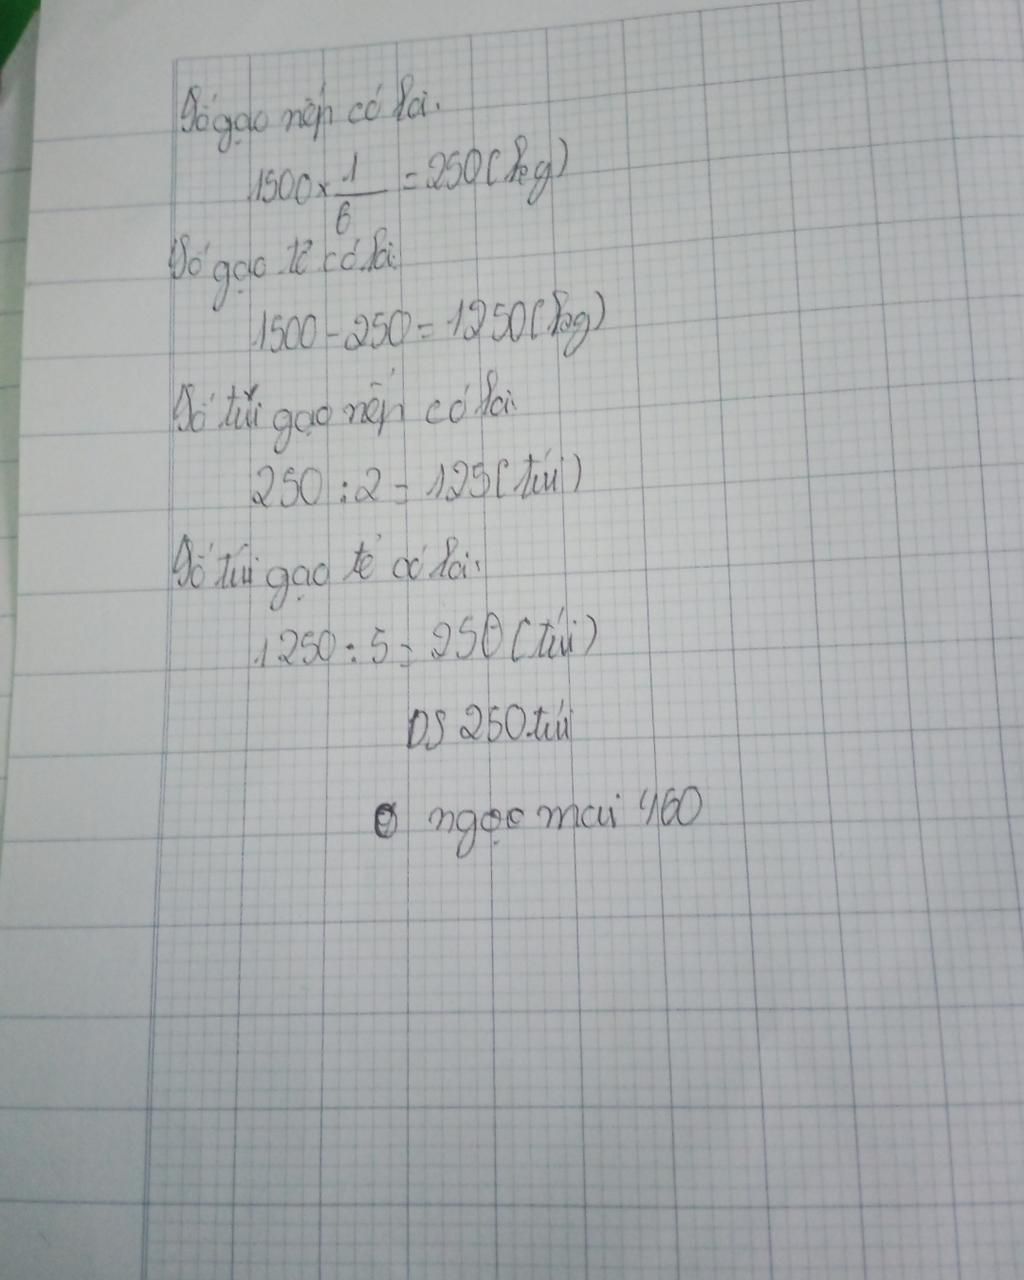 Số gạo nếp có là:
1500 × 1/6 = 250 (kg)
Số gạo tẻ có là:
1500 - 250 = 1250 (kg)
Số túi gạo nếp có là:
250 : 2 = 125 (túi)
Số túi gạo tẻ có là:
1250 : 5 = 250 (túi)
ĐS 250 túi
ngọc mai 460